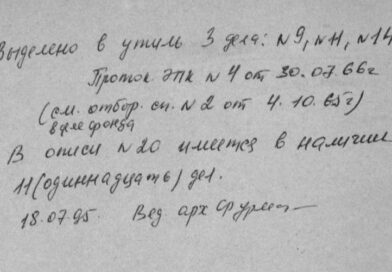 Выделено в утиль 3 дела: N9, N11, N14
Проток ЭПК N4 от 30.07.66г
(см. отбор. сп. N2 от 4.10.65г)
в деле фонда
В описи N20 имеется в наличии
11 (одиннадцать) дел.
18.07.95. Вед арх